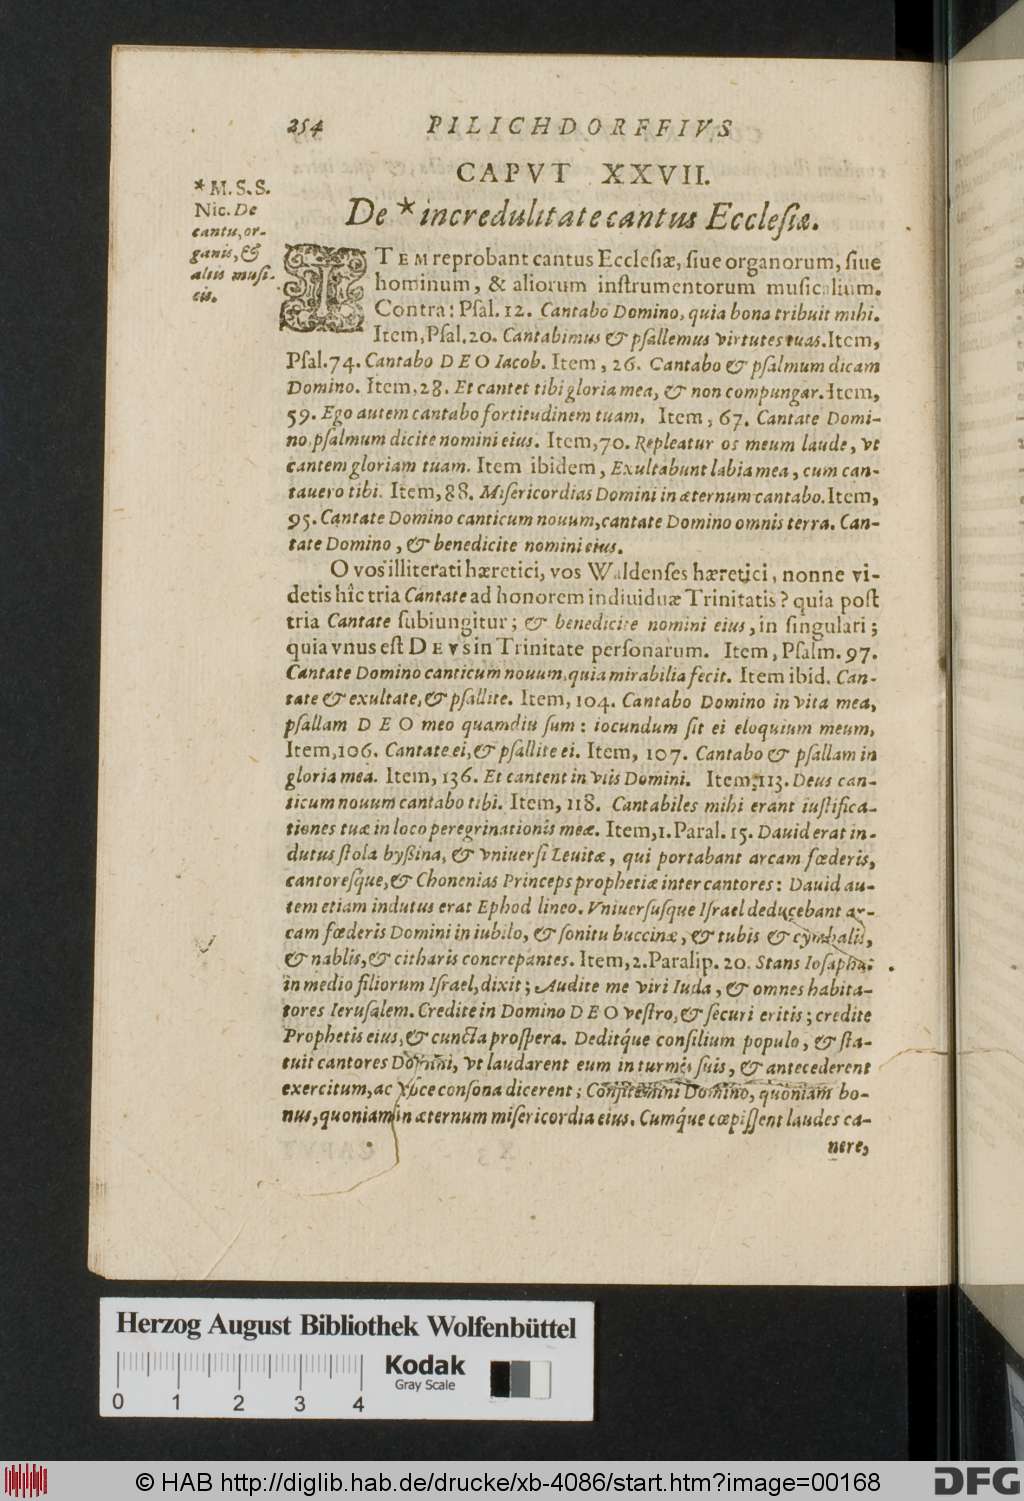 254 PILICHDORFFIVS
CAPVT XXVII.
De * incredulitate cantus Ecclesiæ.
* M. S. S.
Nic. De
cantu, or-
ganis, &
aliis musi-
cis.
ITEM reprobant cantus Ecclesiæ, siue organorum, siue
hominum, & aliorum instrumentorum musicalium.
Contra: Psal. 12. Cantabo Domino, quia bona tribuit mihi.
Item, Psal. 20. Cantabimus & psallemus virtutes tuas. Item,
Psal. 74. Cantabo DEO Iacob. Item, 26. Cantabo & psalmum dicam
Domino. Item, 28. Et cantet tibi gloria mea, & non compungar. Item,
59. Ego autem cantabo fortitudinem tuam. Item, 67. Cantate Domi-
no, psalmum dicite nomini eius. Item, 70. Repleatur os meum laude, vt
cantem gloriam tuam. Item ibidem, Exultabunt labia mea, cum can-
tauero tibi. Item, 88. Misericordias Domini in æternum cantabo. Item,
95. Cantate Domino canticum nouum, cantate Domino omnis terra. Can-
tate Domino, & benedicite nomini eius.
O vos illiterati hæretici, vos Waldenses hæretici, nonne vi-
detis hîc tria Cantate ad honorem indiuiduæ Trinitatis? quia post
tria Cantate subiungitur; & benedicite nomini eius, in singulari;
quia vnus est DEVS in Trinitate personarum. Item, Psalm. 97.
Cantate Domino canticum nouum, quia mirabilia fecit. Item ibid. Can-
tate & exultate, & psallite. Item, 104. Cantabo Domino in vita mea,
psallam DEO meo quamdiu sum: iocundum sit ei eloquium meum,
Item, 106. Cantate ei, & psallite ei. Item, 107. Cantabo & psallam in
gloria mea. Item, 136. Et cantent in viis Domini. Item, 113. Deus can-
ticum nouum cantabo tibi. Item, 118. Cantabiles mihi erant iustifica-
tiones tuæ in loco peregrinationis meæ. Item, 1. Paral. 15. Dauid erat in-
dutus stola byssina, & vniuersi Leuitæ, qui portabant arcam fœderis,
cantoresq́ue, & Chonenias Princeps prophetiæ inter cantores: Dauid au-
tem etiam indutus erat Ephod lineo. Vniuersusque Israel deducebant ar-
cam fœderis Domini in iubilo, & sonitu buccinæ, & tubis & cymbalis,
& nablis, & citharis concrepantes. Item, 2. Paralip. 20. Stans Iosaphat
in medio filiorum Israel, dixit; Audite me viri Iuda, & omnes habita-
tores Ierusalem. Credite in Domino DEO vestro, & securi eritis; credite
Prophetis eius, & cuncta prospera. Deditq́ue consilium populo, & sta-
tuit cantores Domini, vt laudarent eum in turmis suis, & antecederent
exercitum, ac voce consona dicerent; Confitemini Domino, quoniam bo-
nus, quoniam in æternum misericordia eius. Cumq́ue cœpissent laudes ca-
nere,
Herzog August Bibliothek Wolfenbüttel
Kodak
Gray Scale
0 1 2 3 4
© HAB http://diglib.hab.de/drucke/xb-4086/start.htm?image=00168
DFG